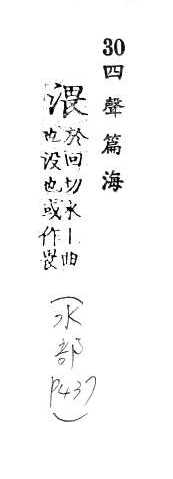 30 四聲篇海
渨
於回切水丨曲
也没也或作畏
(水部 p437)